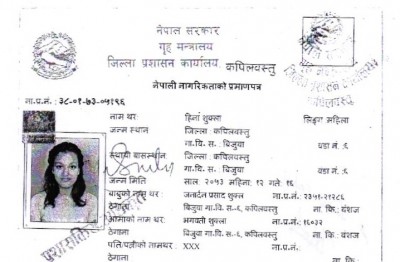 नेपाल सरकार
गृह मन्त्रालय
जिल्ला प्रशासन कार्यालय, कपिलवस्तु
नेपाली नागरिकताको प्रमाणपत्र
ना.प्र.नं.: ३८-०१-७३-०५१९६
नाम थर: हिना शुक्ला महिला
जन्म स्थान जिल्ला: कपिलवस्तु
गा.वि.स.: बिजुवा वडा नं.: ६
स्थायी बासस्थान जिल्ला: कपिलवस्तु
गा.वि.स.: बिजुवा वडा नं.: ६
जन्म मिति साल: २०५३ महिना: १२ गते: १६
बाबुको नाम थर: जनार्दन प्रसाद शुक्ला ना.प्र.नं.: २३५१-२१२८६
ठेगाना: बिजुवा गा.वि.स.-६, कपिलवस्तु ना. कि.: वंशज
आमाको नाम थर: भगवती शुक्ला ना.प्र.नं.: १६०३२
ठेगाना: बिजुवा गा.वि.स.-६, कपिलवस्तु ना. कि.: वंशज
पति/पत्नीको नामथर: XXX ना.प्र.नं.:
ठेगाना: ना. कि.: